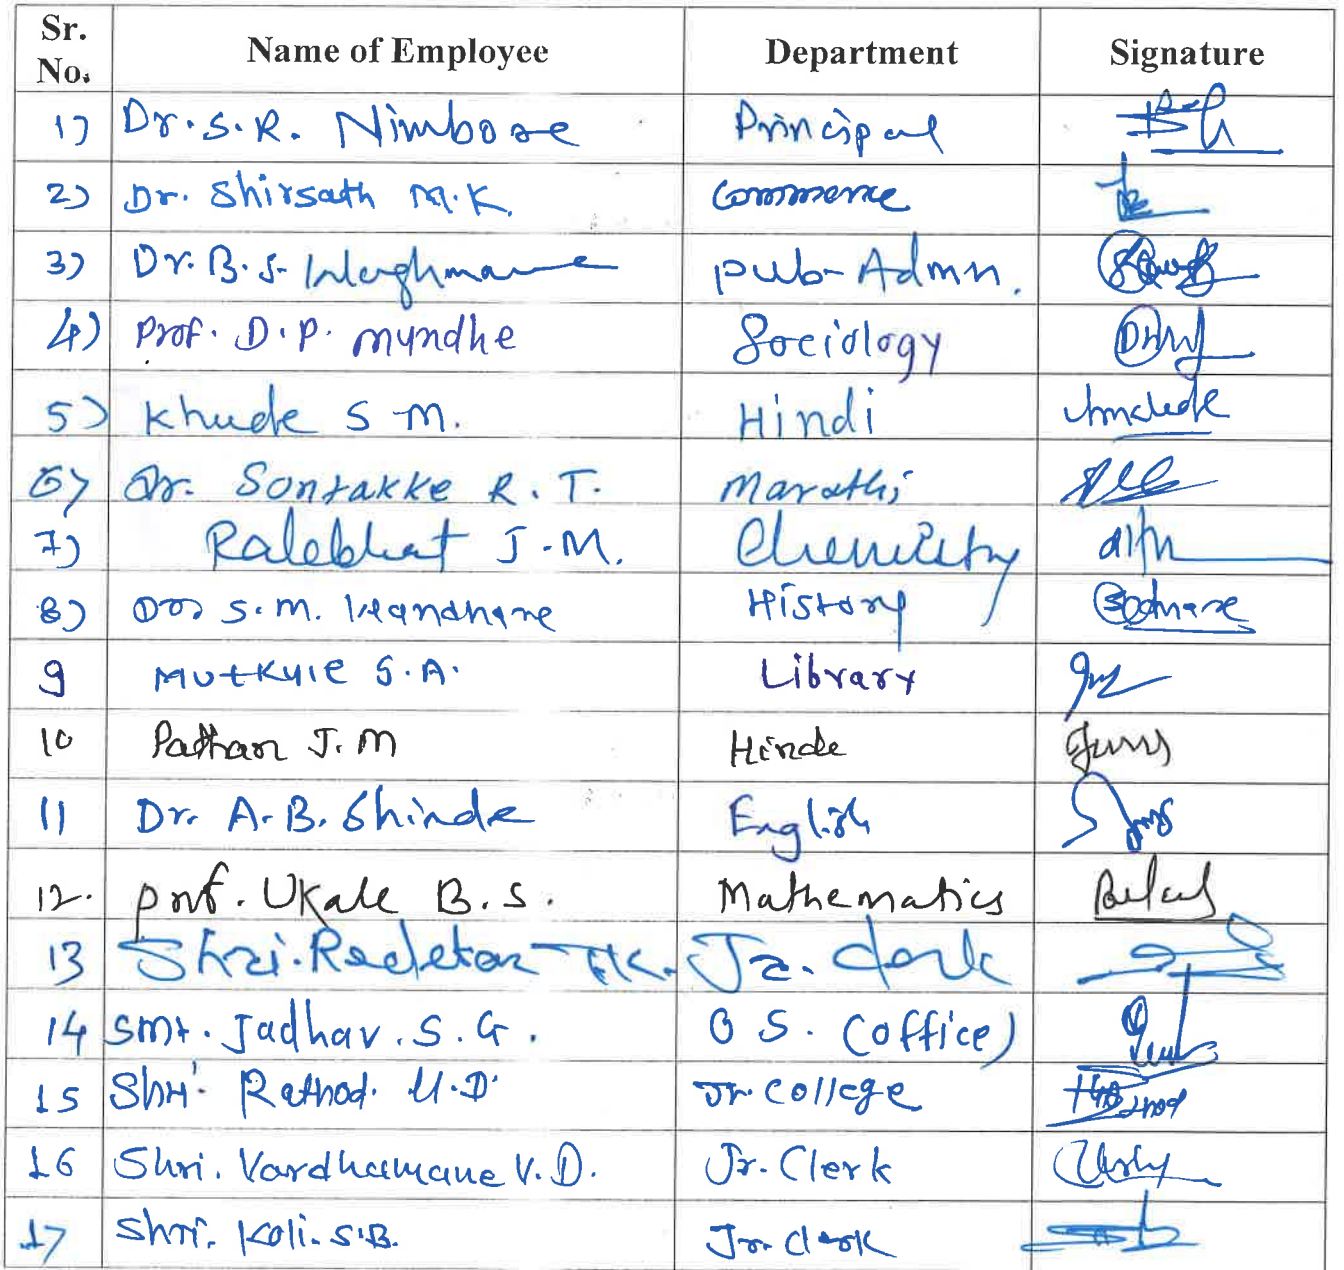 Sr. No. Name of Employee Department Signature
1) Dr. S. R. Nimbore Principal
2) Dr. Shirsath M.K. Commerce
3) Dr. B. S. Waghmare Pub-Admn.
4) Prof. D. P. Myndhe Sociology
5) Khude S M. Hindi
6) Dr. Sontakke R. T. Marathi
7) Ralebhat J.M. Chemistry
8) S.M. History
9 Mutkule S.A. Library
10 Pathan J.M Hinde
11 Dr. A.B. Shinde English
12. Prof. Ukale B.S. Mathematics
13 Shri. Jr. Clerk
14 Smt. Jadhav. S. G. O S. (office)
15 Shri. Rathod. U.D. Jr. College
16 Shri. Vardhamane V.D. Jr. Clerk
17 Shri. Koli. S.B. Jr. Clerk